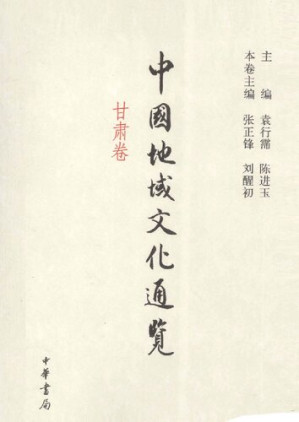 主编 袁行霈 陈进玉
本卷主编 张正锋 刘醒初
中國地域文化通覽
甘肃卷
中華書局